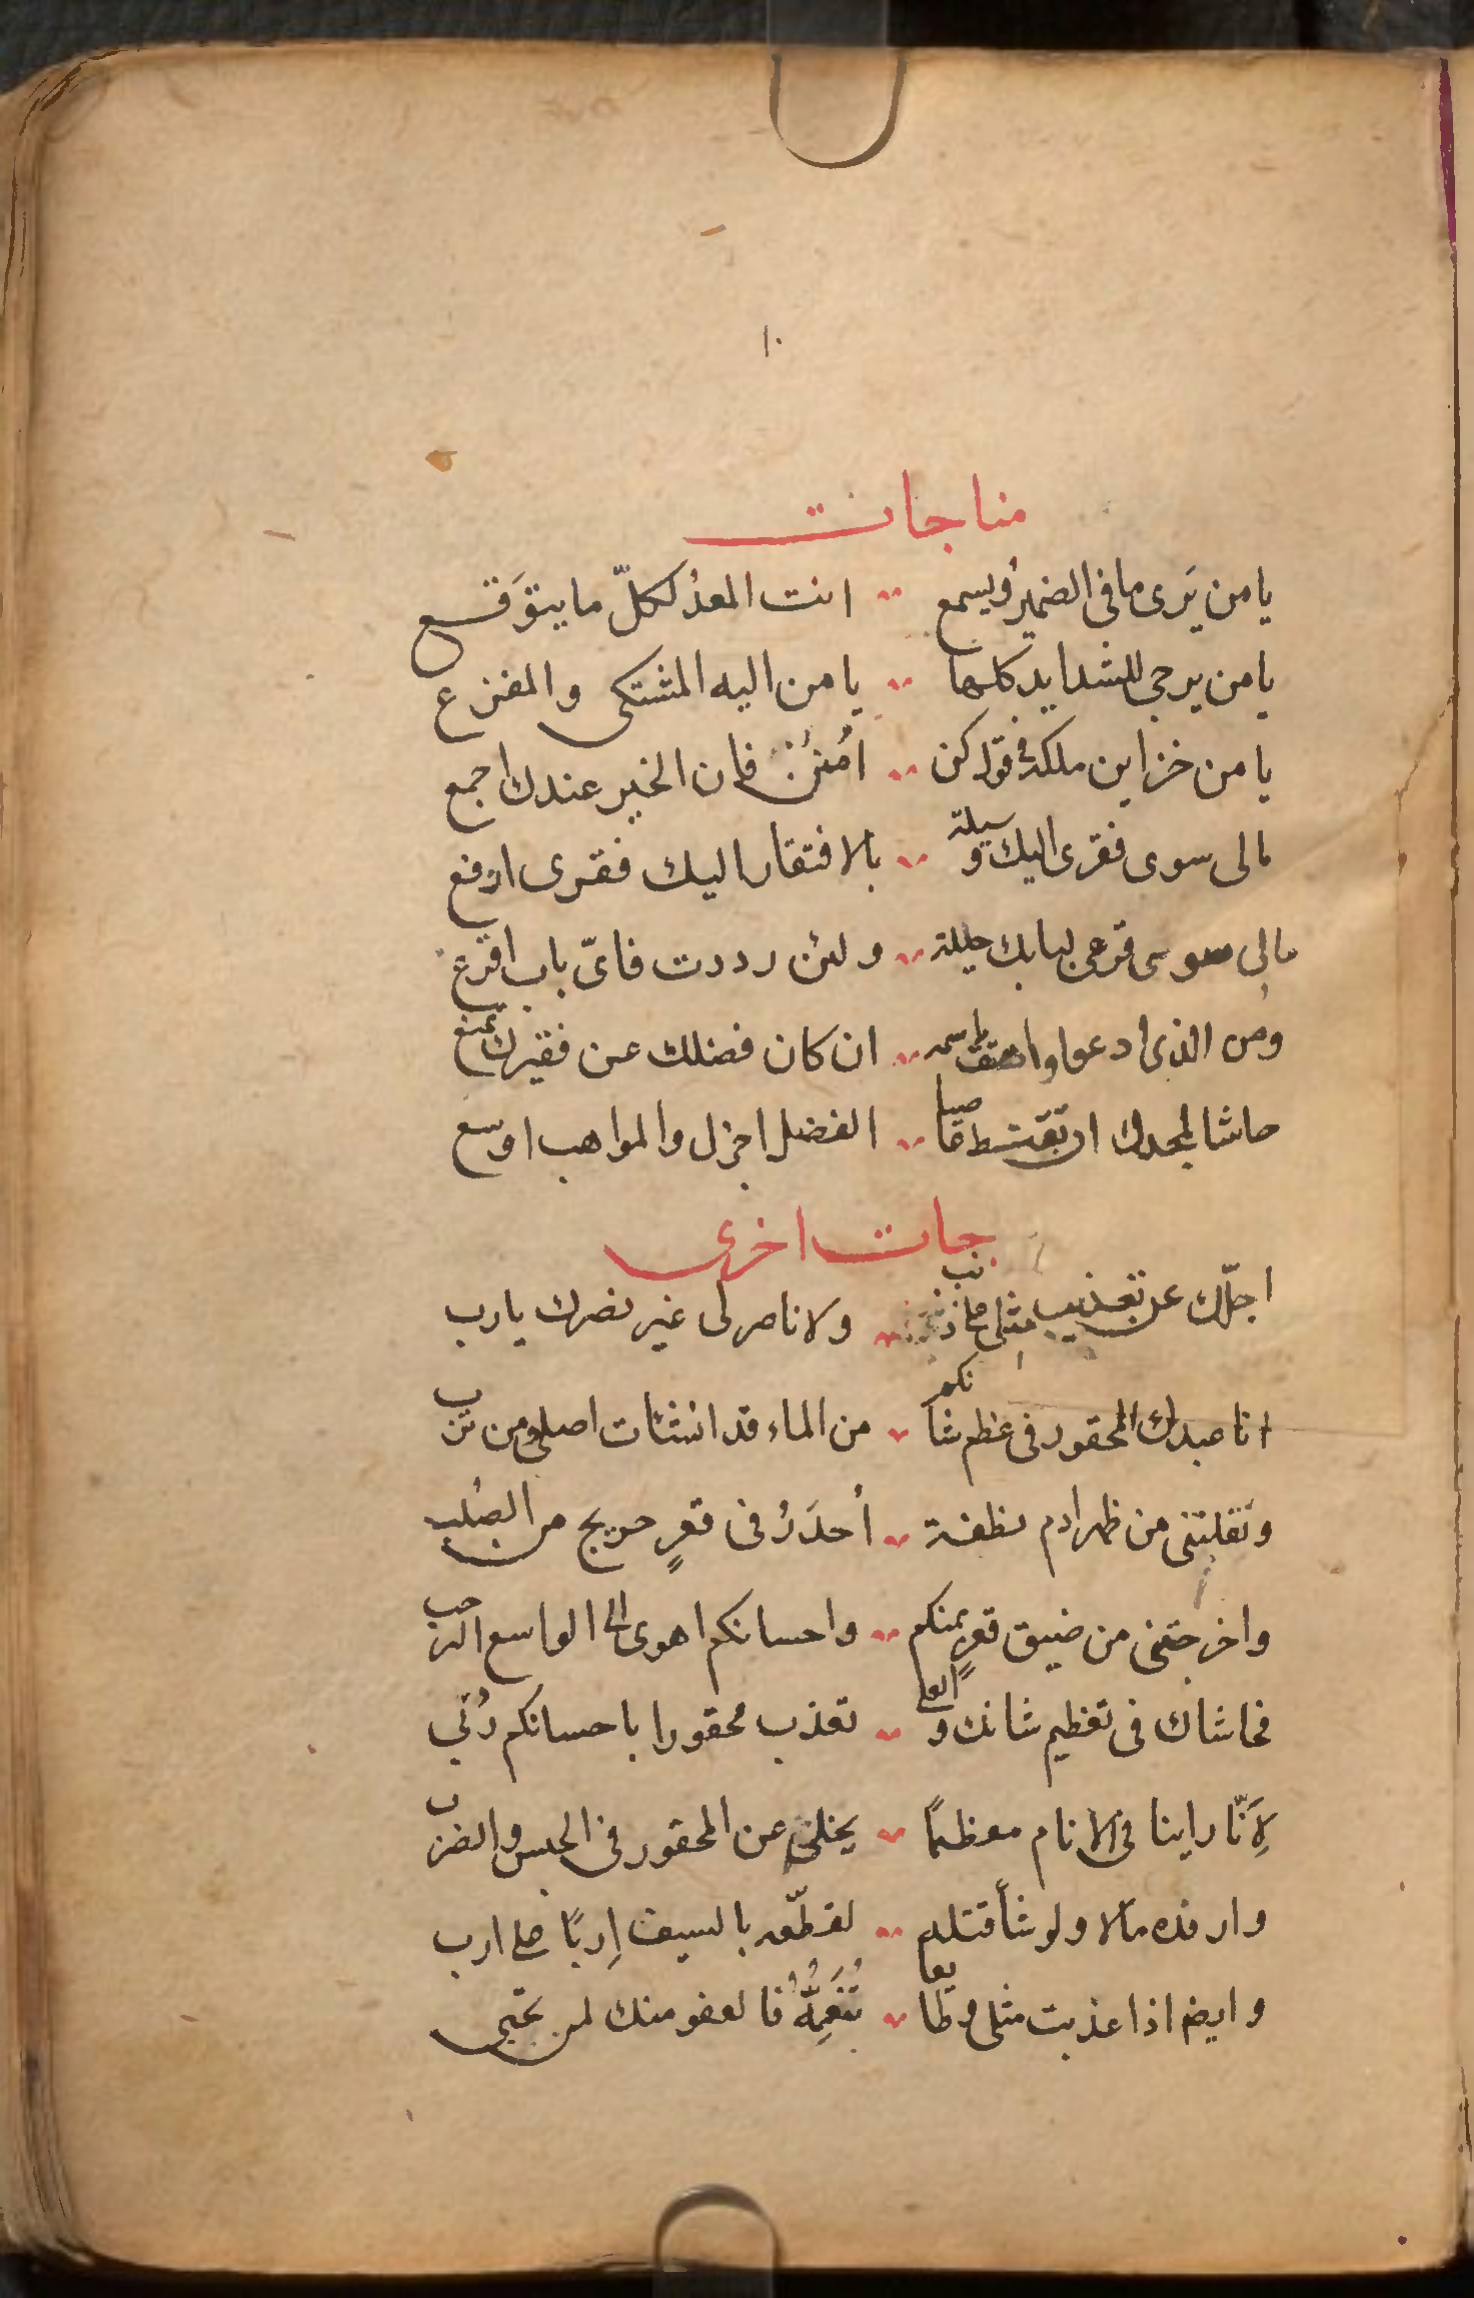 ١٠
مناجات
يا من يَرى ما فى الضمير ويسمع انت المعدُ لكلّ ما يتوَقع
يا من يرجى للشدايد كلها يا من اليه المشتكى والمفزع
يا من خزاين ملكه فى قول كن اُمننْ فان الخير عندك اجمع
مالى سوى فقرى اليك وسيلة بالافتقار اليك فقرى ارفع
مالى سوى قرعى لبابك حيلة ولئن رددت فاىّ باب اقرع
ومن الذى ادعوا واهتف باسمه ان كان فضلك عن فقيرك يمنع
حاشا لمجدك ان تقنط عاصيا الفضل اجزل والمواهب اوسع
جات اخرى
اجلّك عن تعذيب مثلى على ذنب ولا ناصر لى غير نصرك يا رب
انا عبدك المحقور فى عظم شانكم من الماء قد انشئات اصلى ومن ترب
ونقلتنى من ظهر ادم نطفة اُحدَرُ فى قعرٍ حريج من الصُلب
واخرجتنى من ضيق قعرٍ بمنكم واحسانكم اهوى الى الواسع الرحب
فحاشاك فى تعظيم شانك والعلى تعذب محقورا باحسانكم رُبّي
لِاَنّا راينا فى الانام معظمًا يخلى عن المحقور فى الحبس والضرب
وارفده مالا ولو شأ قتله لقطّعه بالسيف اِربًا على ارب
وايضا اذا عذبت مثلى وطايعا تُنَعِمُّهُ فالعفو منك لمن تحبى